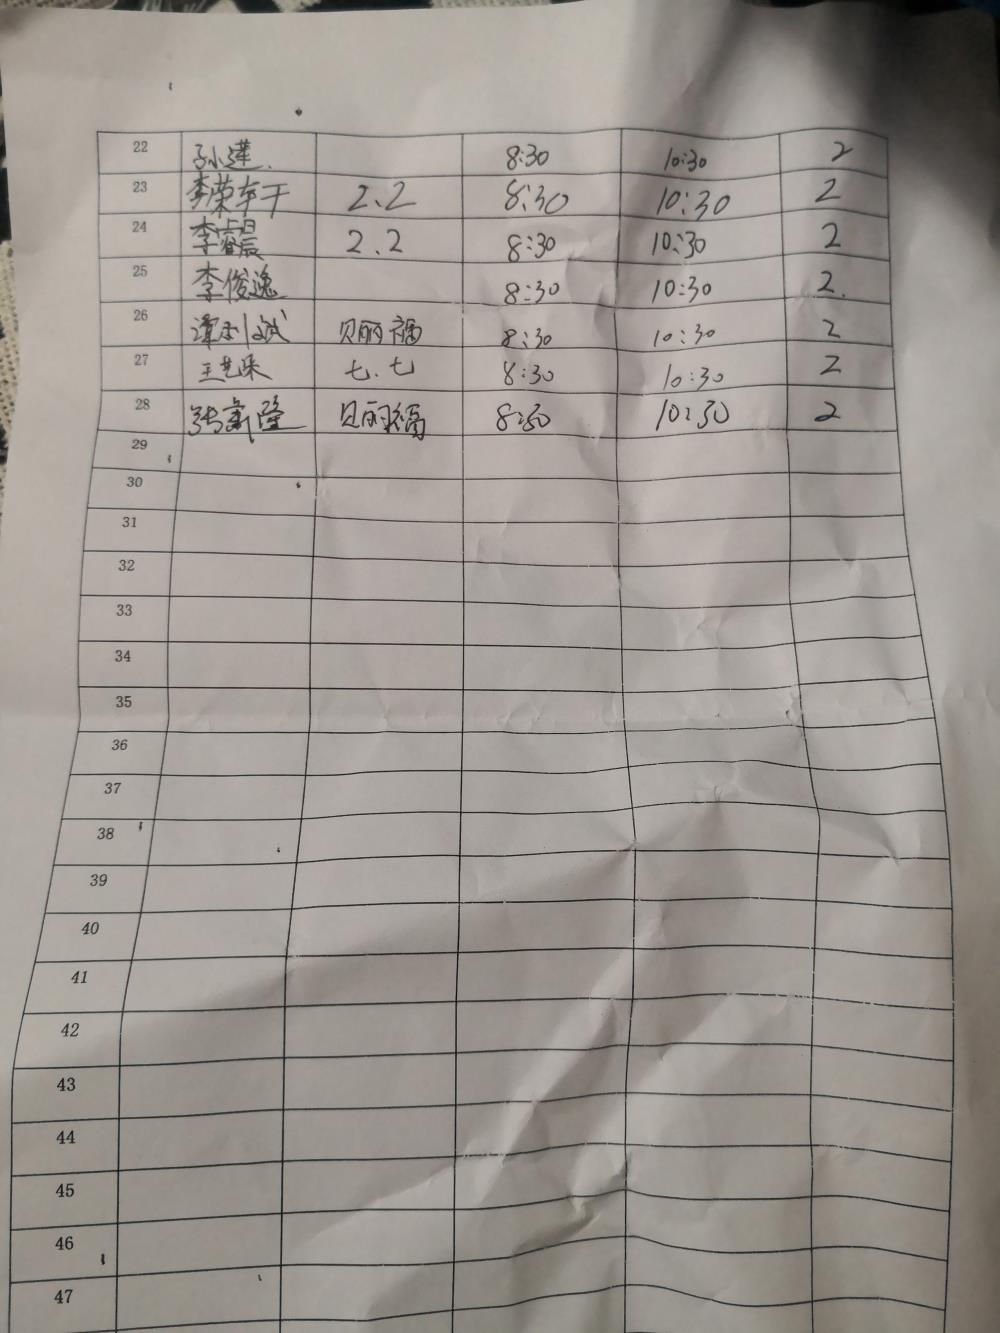 22 孙小莲. 8:30 10:30 2
23 李荣车干 2、2 8:30 10:30 2
24 李睿晨 2、2 8:30 10:30 2
25 李俊逸 8:30 10:30 2.
26 斌 贝丽福 8:30 10:30 2
27 王艺 七、七 8:30 10:30 2
28 张新隆 贝丽福 8:30 10:30 2
29
30
31
32
33
34
35
36
37
38
39
40
41
42
43
44
45
46
47